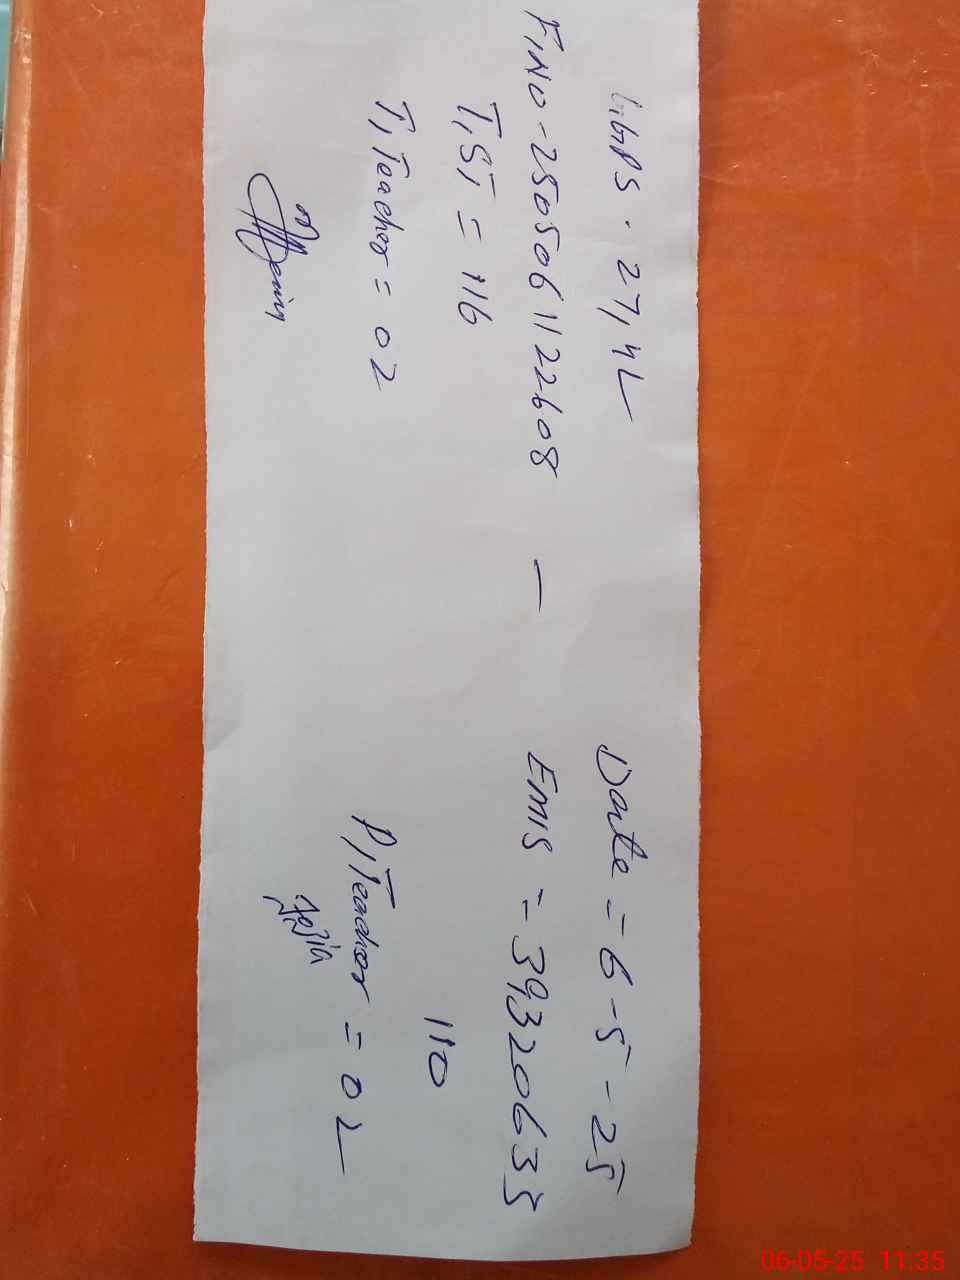 GGPS . 27, 4L Date = 6-5-25
FINO - 2505061122608 — EMIS = 39320633
T, ST = 116 110
T, Teacher = 02 P, Teacher = 02
06-05-25 11:35